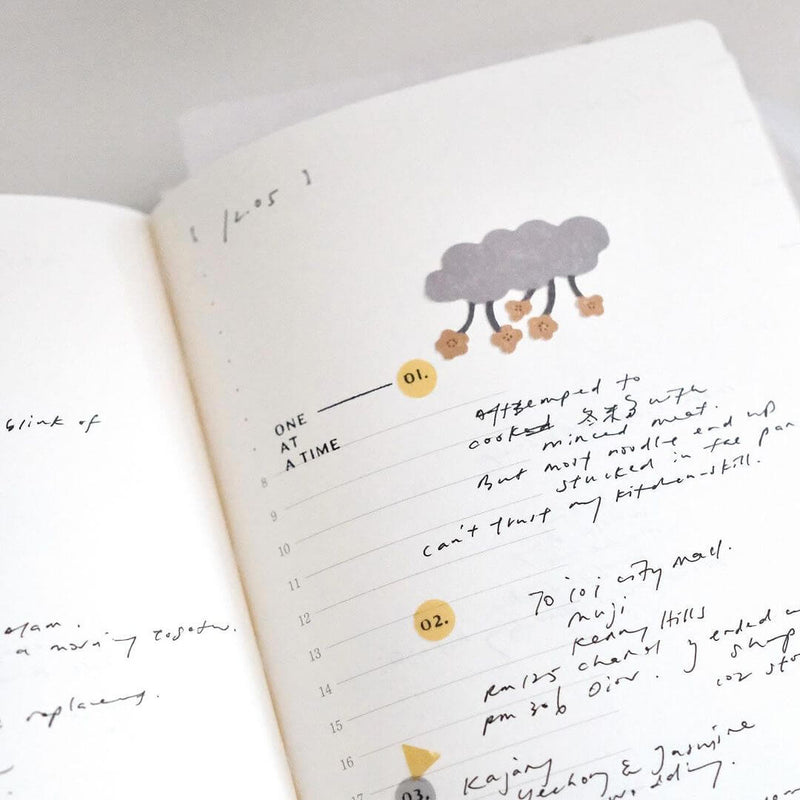 blink of
a morning together.
replacing.
[ 12.05 ]
01.
ONE
AT
A TIME
Attemped to
cook 冬粉 with
minced meat.
But most noodle end up
stucked in the pan
can't trust my kitchen-skill.
8
9
10
11
12
13
14
15
16
17
02.
To ioi city mall.
muji
Kenny Hills
RM125 chanel
pm 306 Dior. I ended
shop
102
03.
Kajang
Yeehong & Jasmine
wedding.